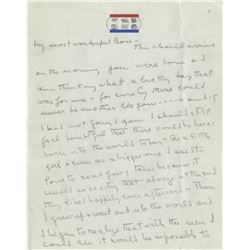 My most wonderful Bess -
This should arrive
on the morning you were born and I
am thinking what a lucky day that
was for me - for surely there could
never be another like you - and if
I had not found you I should
feel doubtful that there could be here
in the world today - As a little
girl even as a bigger one I used to
love to read fairy tales because it
seemed so pretty that always at the end
they lived happily ever afterward - Then
I grew up and went out into the world and
I began to realize that with the men I
could see it would be impossible to